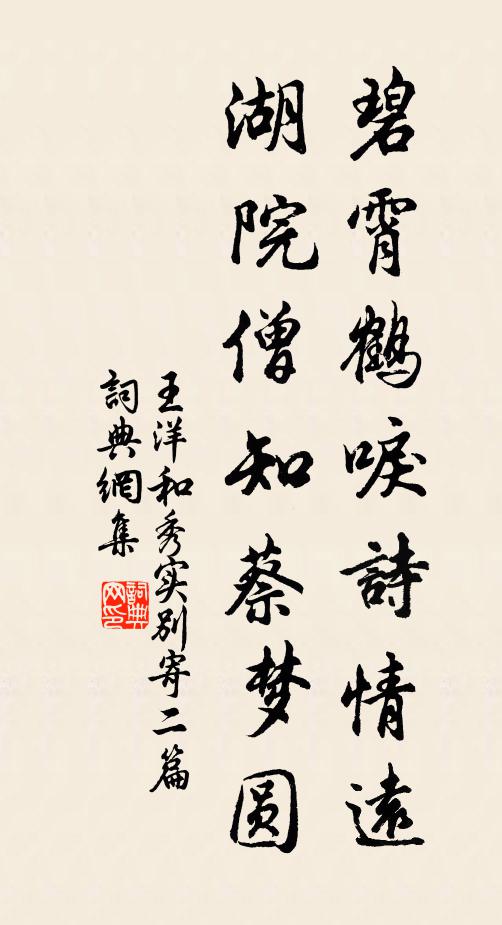 碧霄鹤唳詩情遠
湖院僧知蔡梦圆
王洋和秀实别寄二篇
詞典網集
詞典网印